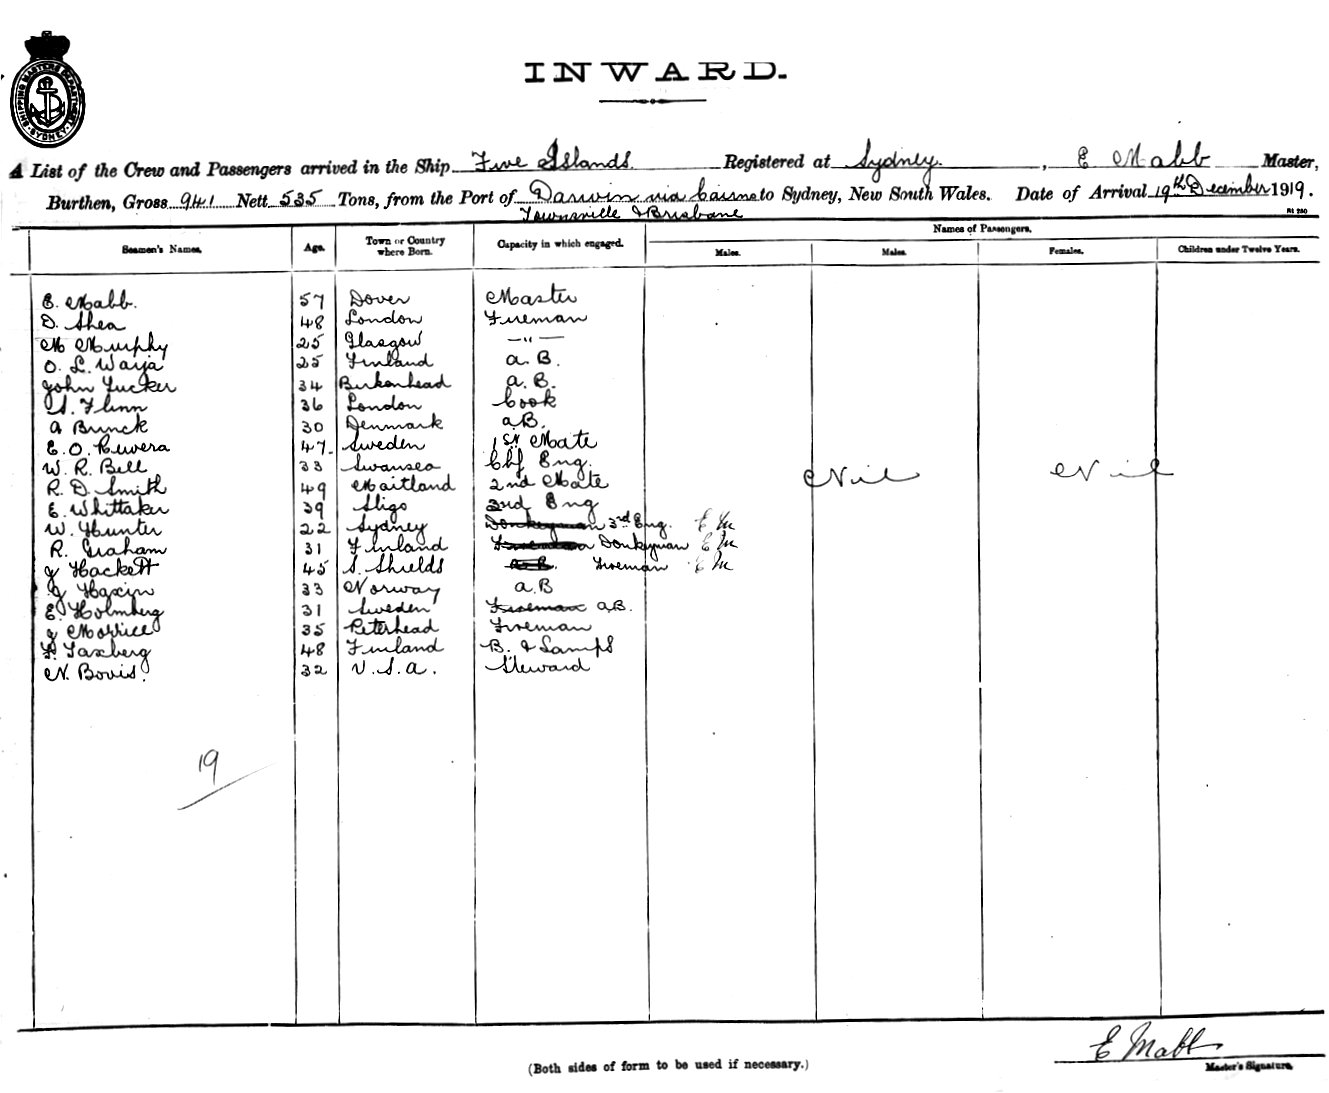 SHIPPING MASTERS DEPARTMENT SYDNEY
INWARD.
A List of the Crew and Passengers arrived in the Ship Five Islands Registered at Sydney, E Mabb Master,
Burthen, Gross 941 Nett 535 Tons, from the Port of Darwin via Cairns to Sydney, New South Wales. Date of Arrival 19th December 1919.
Townsville & Brisbane
Names of Passengers.
Seamen's Names. Age. Town or Country where Born. Capacity in which engaged. Males. Males. Females. Children under Twelve Years.
E. Mabb. 57 Dover Master
D. Shea 48 London Fireman
M Murphy 25 Glasgow —"—
O. L. Warja 25 Finland A. B.
John Tucker 34 Birkenhead A. B.
S. Flinn 36 London Cook
A Bunck 30 Denmark AB.
E. O. Ruvera 47. Sweden 1st Mate
W. R. Bell 33 Swansea Chf Eng.
R. D. Smith 49 Maitland 2nd Mate
Nil Nil
E. Whittaker 39 Sligo 2nd Eng
W. Hunter 22 Sydney Donkeyman 3rd Eng. E M
R. Graham 31 Finland Fireman Donkeyman E M
J Hackett 45 S. Shields A.B. Fireman E M
J Haxin 33 Norway A.B
E. Holmberg 31 Sweden Fireman AB.
J Morrice 35 Peterhead Fireman
F. Taxberg 48 Finland B. & Lamps
N. Bovis. 32 U.S.A. Steward
19
E Mabb
(Both sides of form to be used if necessary.)
Master's Signature.